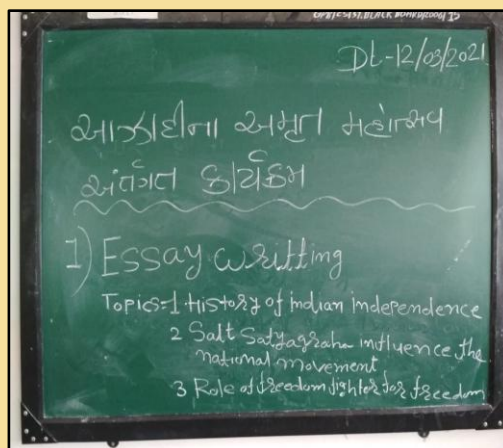 Dt-12/03/2021
આઝાદીના અમૃત મહોત્સવ
અંતર્ગત કાર્યક્રમ
1) Essay writting
Topics=1 History of indian independence
2 Salt Satyagraha influence the
national movement
3 Role of freedom fighter for freedom